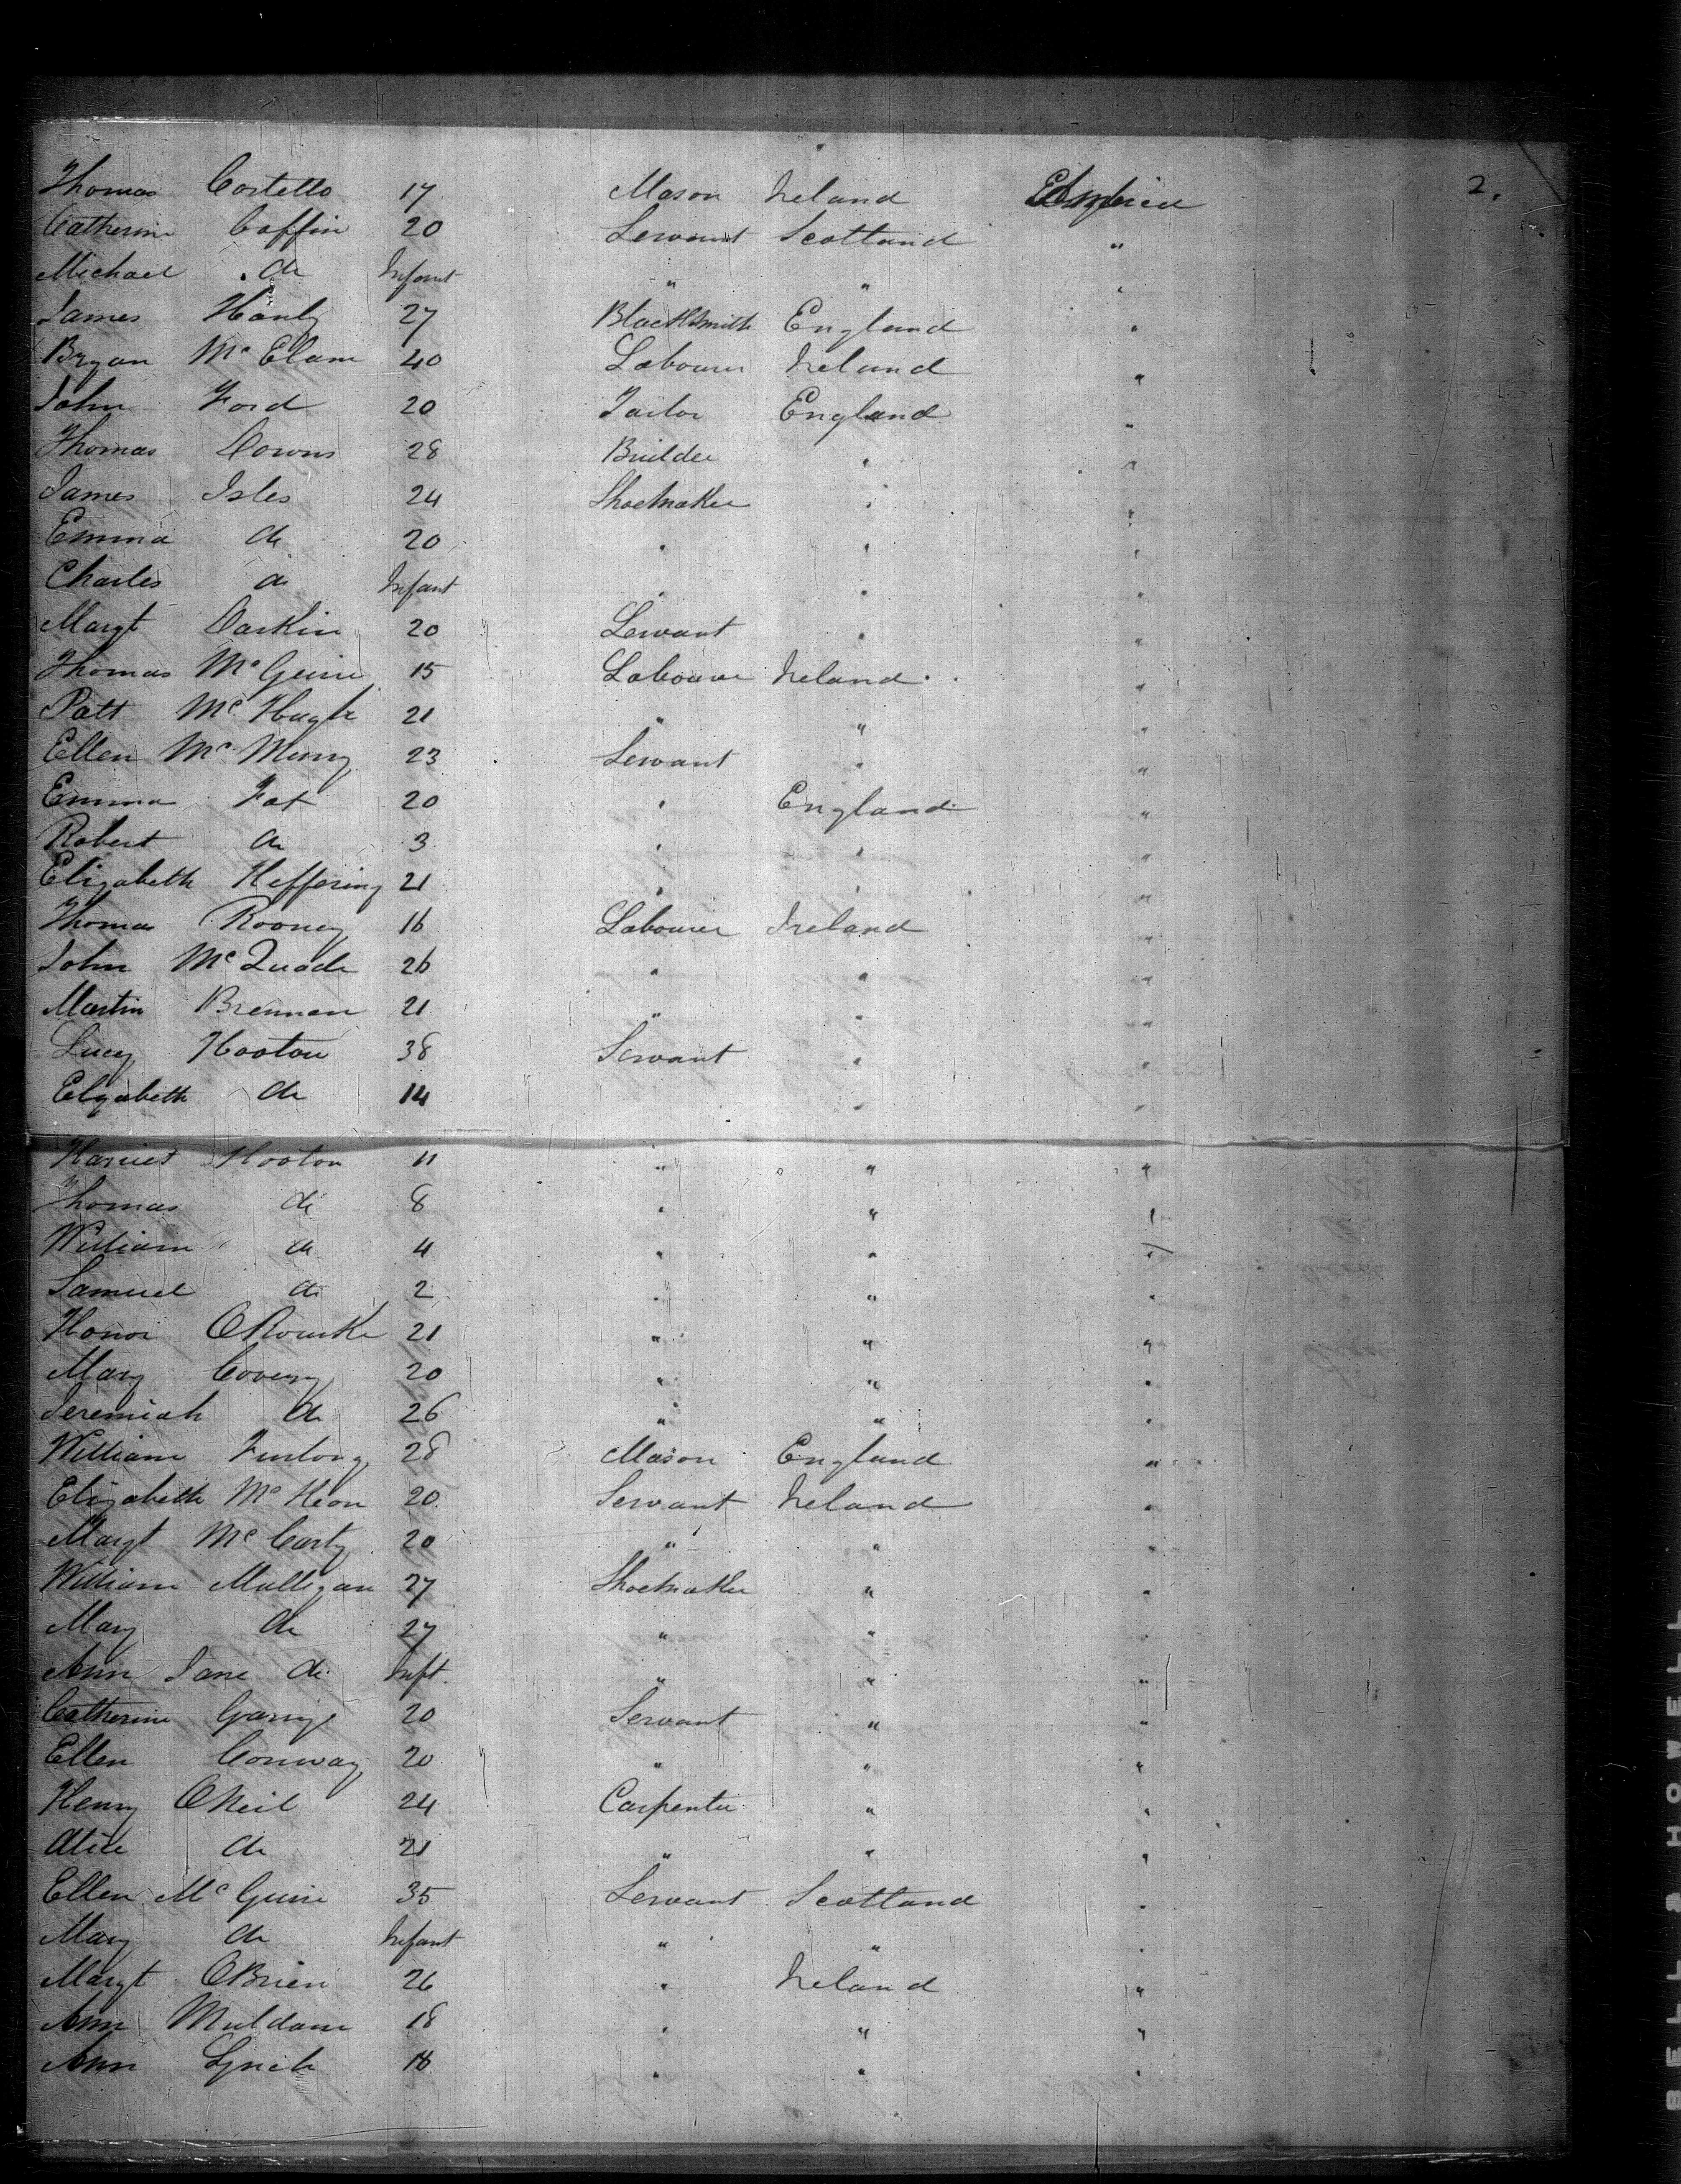 2.
Thomas Costello 17 Mason Ireland America
Catherine Coffin 20 Servant Scotland "
Michael do Infant " " "
James Hanly 27 Blacksmith England "
Bryan Mc Elam 40 Labourer Ireland "
John Ford 20 Tailor England "
Thomas Downs 28 Builder " "
James Isles 24 Shoemaker " "
Emma do 20 " " "
Charles do Infant " " "
Margt Darkin 20 Servant " "
Thomas Mc Guire 15 Labourer Ireland "
Patt Mc Hugh 21 " " "
Ellen Mc Murry 23 Servant " "
Emma Fox 20 " England "
Robert do 3 " " "
Elizabeth Heffering 21 " " "
Thomas Rooney 16 Labourer Ireland "
John Mc Quade 26 " " "
Martin Brennan 21 " " "
Lucy Hooton 38 Servant " "
Elizabeth do 14 " "
Harriet Hooton 11 " " "
Thomas do 8 " " "
William do 4 " " "
Samuel do 2 " " "
Honor O'Rourke 21 " " "
Mary Coveny 20 " " "
Jeremiah do 26 " " "
William Furlong 28 Mason England "
Elizabeth Mc Keon 20 Servant Ireland "
Margt Mc Carty 20 " " "
William Mulligan 27 Shoemaker " "
Mary do 27 " " "
Ann Jane do Inft " " "
Catherine 20 Servant " "
Ellen Conway 20 " " "
Henry O'Neil 24 Carpenter " "
Alice do 21 " " "
Ellen Mc Guire 35 Servant Scotland "
Mary do Infant " " "
Margt O'Brien 26 " Ireland "
Ann Muldam 18 " " "
Ann Lynch 18 " " "
BELL & HOWELL